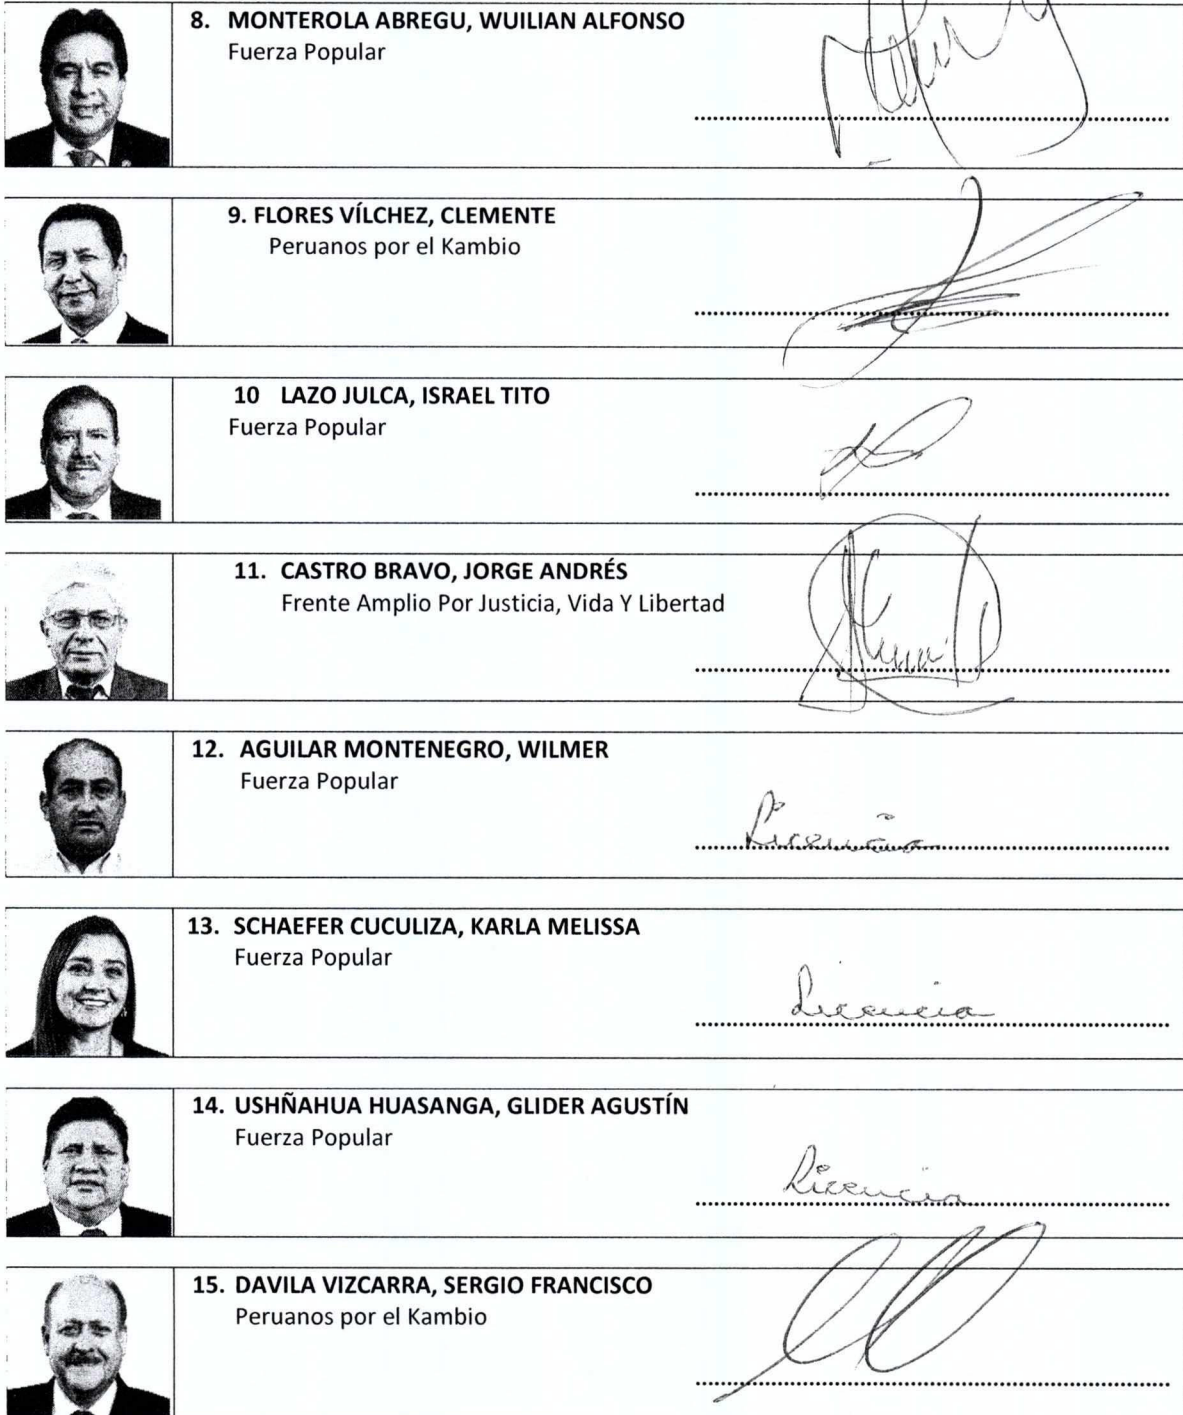 8. MONTEROLA ABREGU, WUILIAN ALFONSO
Fuerza Popular
9. FLORES VÍLCHEZ, CLEMENTE
Peruanos por el Kambio
10 LAZO JULCA, ISRAEL TITO
Fuerza Popular
11. CASTRO BRAVO, JORGE ANDRÉS
Frente Amplio Por Justicia, Vida Y Libertad
12. AGUILAR MONTENEGRO, WILMER
Fuerza Popular
Licencia
13. SCHAEFER CUCULIZA, KARLA MELISSA
Fuerza Popular
Licencia
14. USHÑAHUA HUASANGA, GLIDER AGUSTÍN
Fuerza Popular
Licencia
15. DAVILA VIZCARRA, SERGIO FRANCISCO
Peruanos por el Kambio